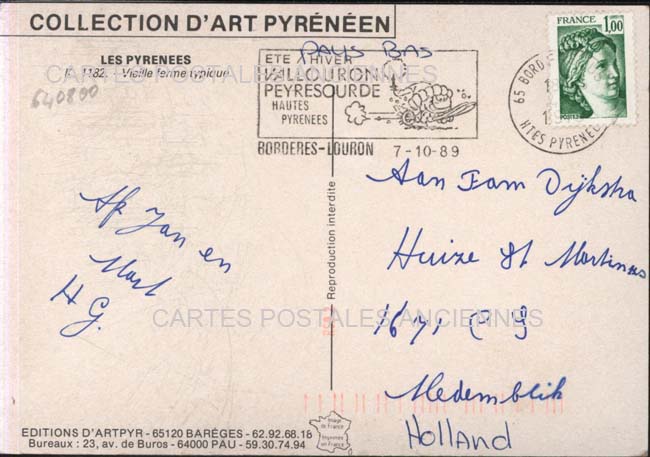 COLLECTION D'ART PYRÉNÉEN
LES PYRENEES
1182. - Vieille ferme typique
640800
PAYS BAS
ETE HIVER
VAL LOURON
PEYRESOURDE
HAUTES
PYRENEES
BORDERES-LOURON 7-10-89
65 BORD
HTES PYRENEES
FRANCE
1,00
POSTES
CARTES POSTALES ANCIENNES
Reproduction interdite
Jan en
Mart
H G.
Aan Fam Dijkstra
Huize St Martinus
1671 C G
Medemblik
Holland
CARTES POSTALES ANCIENNES
EDITIONS D'ARTPYR - 65120 BARÈGES - 62.92.68.18
Bureaux : 23, av. de Buros - 64000 PAU - 59.30.74.94